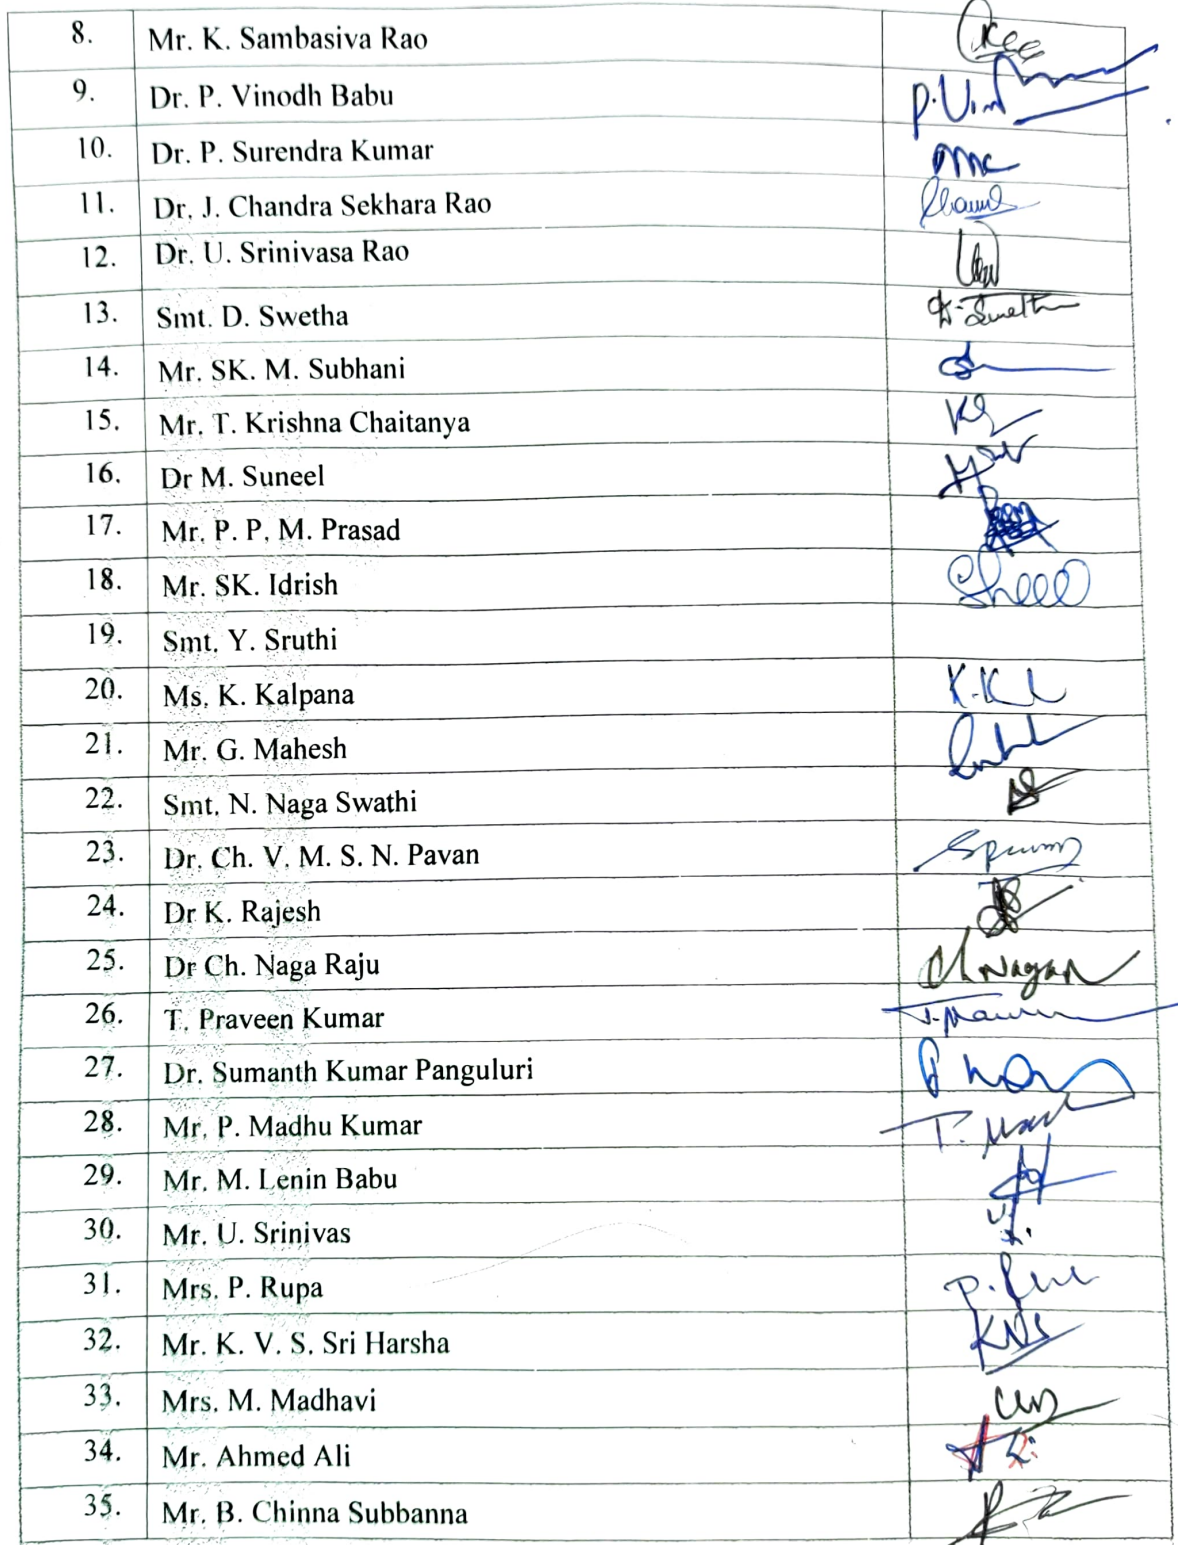 8. Mr. K. Sambasiva Rao
9. Dr. P. Vinodh Babu
10. Dr. P. Surendra Kumar
11. Dr. J. Chandra Sekhara Rao
12. Dr. U. Srinivasa Rao
13. Smt. D. Swetha D. Swetha
14. Mr. SK. M. Subhani
15. Mr. T. Krishna Chaitanya
16. Dr M. Suneel
17. Mr. P. P. M. Prasad
18. Mr. SK. Idrish
19. Smt. Y. Sruthi
20. Ms. K. Kalpana
21. Mr. G. Mahesh
22. Smt. N. Naga Swathi
23. Dr. Ch. V. M. S. N. Pavan
24. Dr K. Rajesh
25. Dr Ch. Naga Raju
26. T. Praveen Kumar
27. Dr. Sumanth Kumar Panguluri
28. Mr. P. Madhu Kumar
29. Mr. M. Lenin Babu
30. Mr. U. Srinivas
31. Mrs. P. Rupa
32. Mr. K. V. S. Sri Harsha
33. Mrs. M. Madhavi
34. Mr. Ahmed Ali
35. Mr. B. Chinna Subbanna